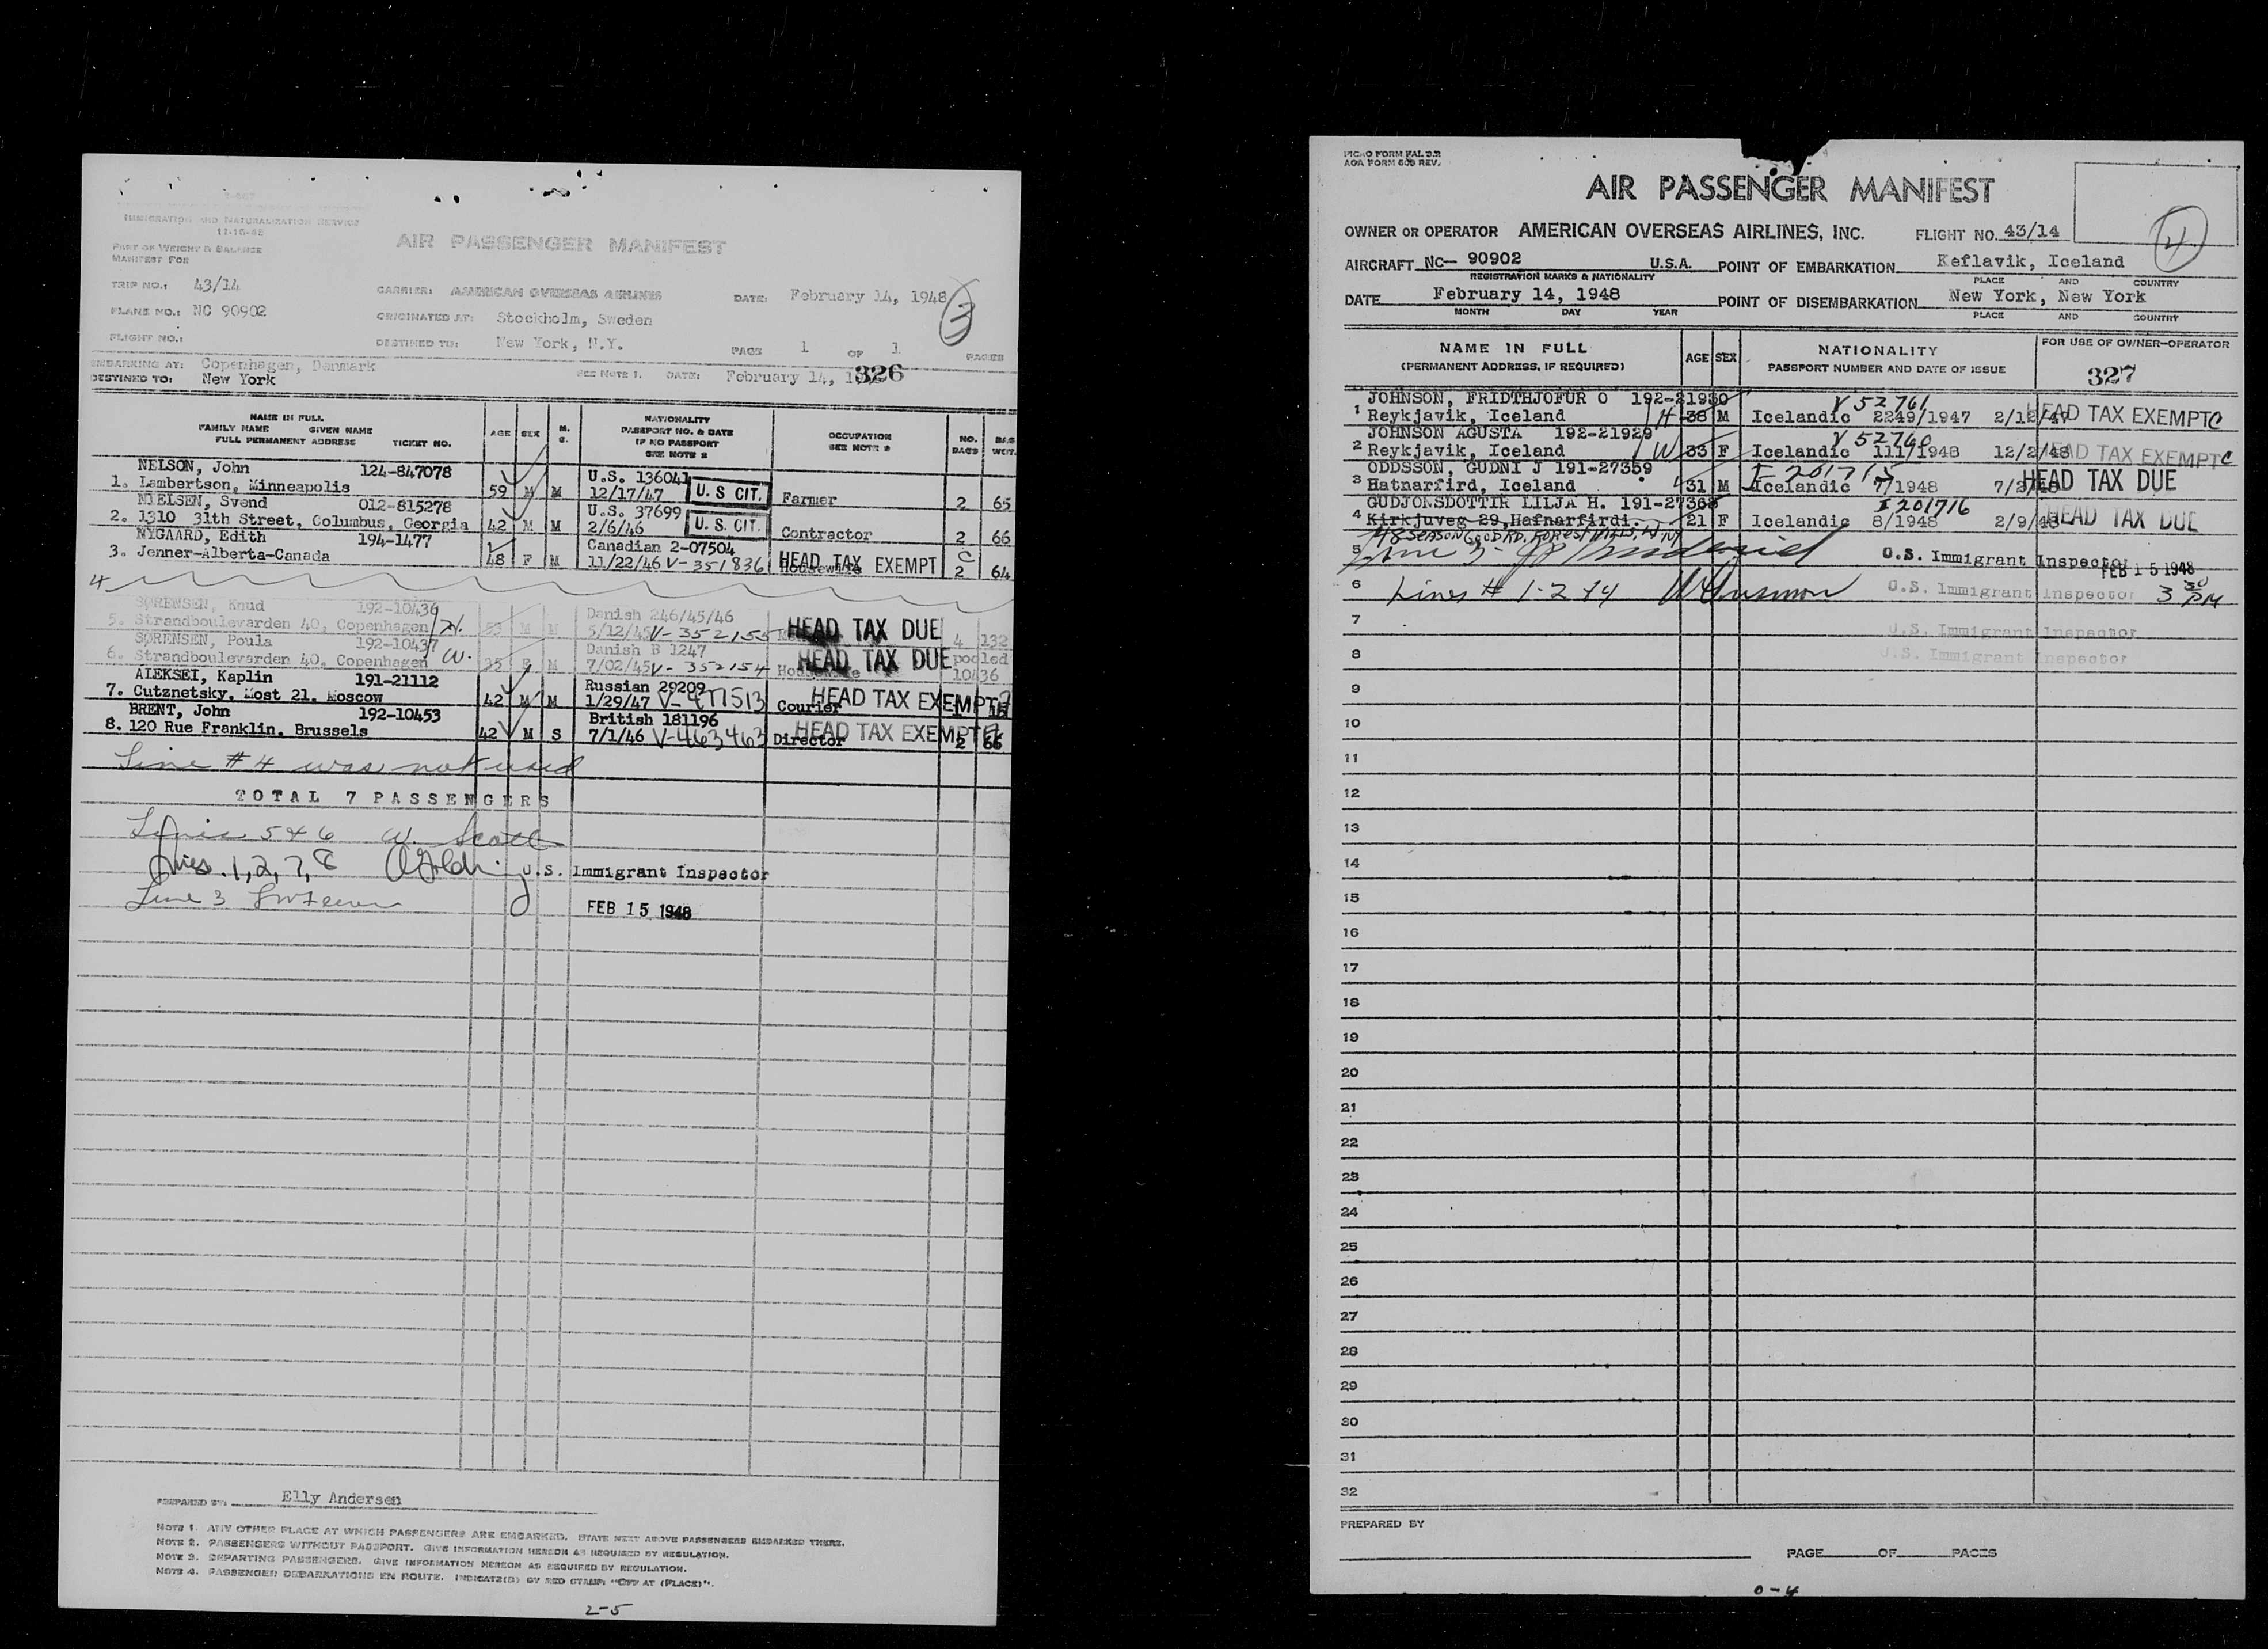 IMMIGRATION AND NATURALIZATION SERVICE
11-10-48
PART OF WEIGHT & BALANCE
MANIFEST FOR
AIR PASSENGER MANIFEST
TRIP NO.: 43/14
CARRIER: AMERICAN OVERSEAS AIRLINES
DATE: February 14, 1948
3
PLANE NO.: NC 90902
ORIGINATED AT: Stockholm, Sweden
FLIGHT NO.:
DESTINED TO: New York, N.Y.
PAGE 1 OF 1 PAGES
EMBARKING AT: Copenhagen, Denmark
SEE NOTE 1. DATE: February 14, 1
326
DESTINED TO: New York
NAME IN FULL
FAMILY NAME GIVEN NAME
FULL PERMANENT ADDRESS TICKET NO.
AGE SEX M. S.
NATIONALITY
PASSPORT NO. & DATE
IF NO PASSPORT
SEE NOTE 2
OCCUPATION
SEE NOTE 3
NO. BAGS
BAG WGT.
NELSON, John 124-847078 U.S. 136041
1. Lambertson, Minneapolis 59 M M 12/17/47 U. S CIT. Farmer 2 65
NIELSEN, Svend 012-815278 U.S. 37699
2. 1310 31th Street, Columbus, Georgia 42 M M 2/6/46 U. S. CIT. Contractor 2 66
NYGAARD, Edith 194-1477 Canadian 2-07504
3. Jenner-Alberta-Canada 48 F M 11/22/46 V-351836 HEAD TAX EXEMPT C Housewife 2 64
4
SØRENSEN, Knud 192-10436 Danish 246/45/46
5. Strandboulevarden 40, Copenhagen H. 53 M M 5/12/45 V-352155 HEAD TAX DUE 4 132
SØRENSEN, Poula 192-10437 Danish B 1247
6. Strandboulevarden 40, Copenhagen W. 35 F M 7/02/45 V-352154 Housewife HEAD TAX DUE pooled 10436
ALEKSEI, Kaplin 191-21112 Russian 29209
7. Cutznetsky, Most 21, Moscow 42 M M 1/29/47 V-477513 Courier HEAD TAX EXEMPT
BRENT, John 192-10453 British 181196
8. 120 Rue Franklin, Brussels 42 M S 7/1/46 V-463463 Director HEAD TAX EXEMPT 2 66
Line #4 was not used
TOTAL 7 PASSENGERS
Lines 5 & 6 W. Scott
Lines 1, 2, 7, 8
U.S. Immigrant Inspector
Line 3
FEB 15 1948
PREPARED BY: Elly Andersen
NOTE 1. ANY OTHER PLACE AT WHICH PASSENGERS ARE EMBARKED. STATE NEXT ABOVE PASSENGERS EMBARKED THERE.
NOTE 2. PASSENGERS WITHOUT PASSPORT. GIVE INFORMATION HEREON AS REQUIRED BY REGULATION.
NOTE 3. DEPARTING PASSENGERS. GIVE INFORMATION HEREON AS REQUIRED BY REGULATION.
NOTE 4. PASSENGER DEBARKATIONS EN ROUTE. INDICATE(D) BY RED STAMP: "OFF AT (PLACE)".
2-5
PICAO FORM FAL 3.2
AOA FORM 605 REV.
AIR PASSENGER MANIFEST
4
OWNER OR OPERATOR AMERICAN OVERSEAS AIRLINES, INC. FLIGHT NO. 43/14
AIRCRAFT NC- 90902 U.S.A. POINT OF EMBARKATION Keflavik, Iceland
REGISTRATION MARKS & NATIONALITY PLACE AND COUNTRY
DATE February 14, 1948 POINT OF DISEMBARKATION New York, New York
MONTH DAY YEAR PLACE AND COUNTRY
NAME IN FULL
(PERMANENT ADDRESS, IF REQUIRED)
AGE SEX
NATIONALITY
PASSPORT NUMBER AND DATE OF ISSUE
FOR USE OF OWNER-OPERATOR
327
JOHNSON, FRIDTHJOFUR O 192-21930 V 52761
1 Reykjavik, Iceland H 38 M Icelandic 2249/1947 2/12/47 HEAD TAX EXEMPT C
JOHNSON AGUSTA 192-21929 V 52760
2 Reykjavik, Iceland W 33 F Icelandic 111/1948 12/2/48 HEAD TAX EXEMPT C
ODDSSON, GUDNI J 191-27359 I-201715
3 Hatnarfird, Iceland 31 M Icelandic 7/1948 7/2/48 HEAD TAX DUE
GUDJONSDOTTIR LILJA H. 191-27368 I 201716
4 Kirkjuveg 29, Hafnarfirdi. 21 F Icelandic 8/1948 2/9/48 HEAD TAX DUE
48 SEASONGOOD RD. FOREST HILLS, N.Y.
5 Line 3- U.S. Immigrant Inspector
FEB 15 1948
6 Lines # 1-2 & 4 U.S. Immigrant Inspector 3 30 PM
7 U.S. Immigrant Inspector
8 U.S. Immigrant Inspector
9
10
11
12
13
14
15
16
17
18
19
20
21
22
23
24
25
26
27
28
29
30
31
32
PREPARED BY
PAGE OF PAGES
0-4